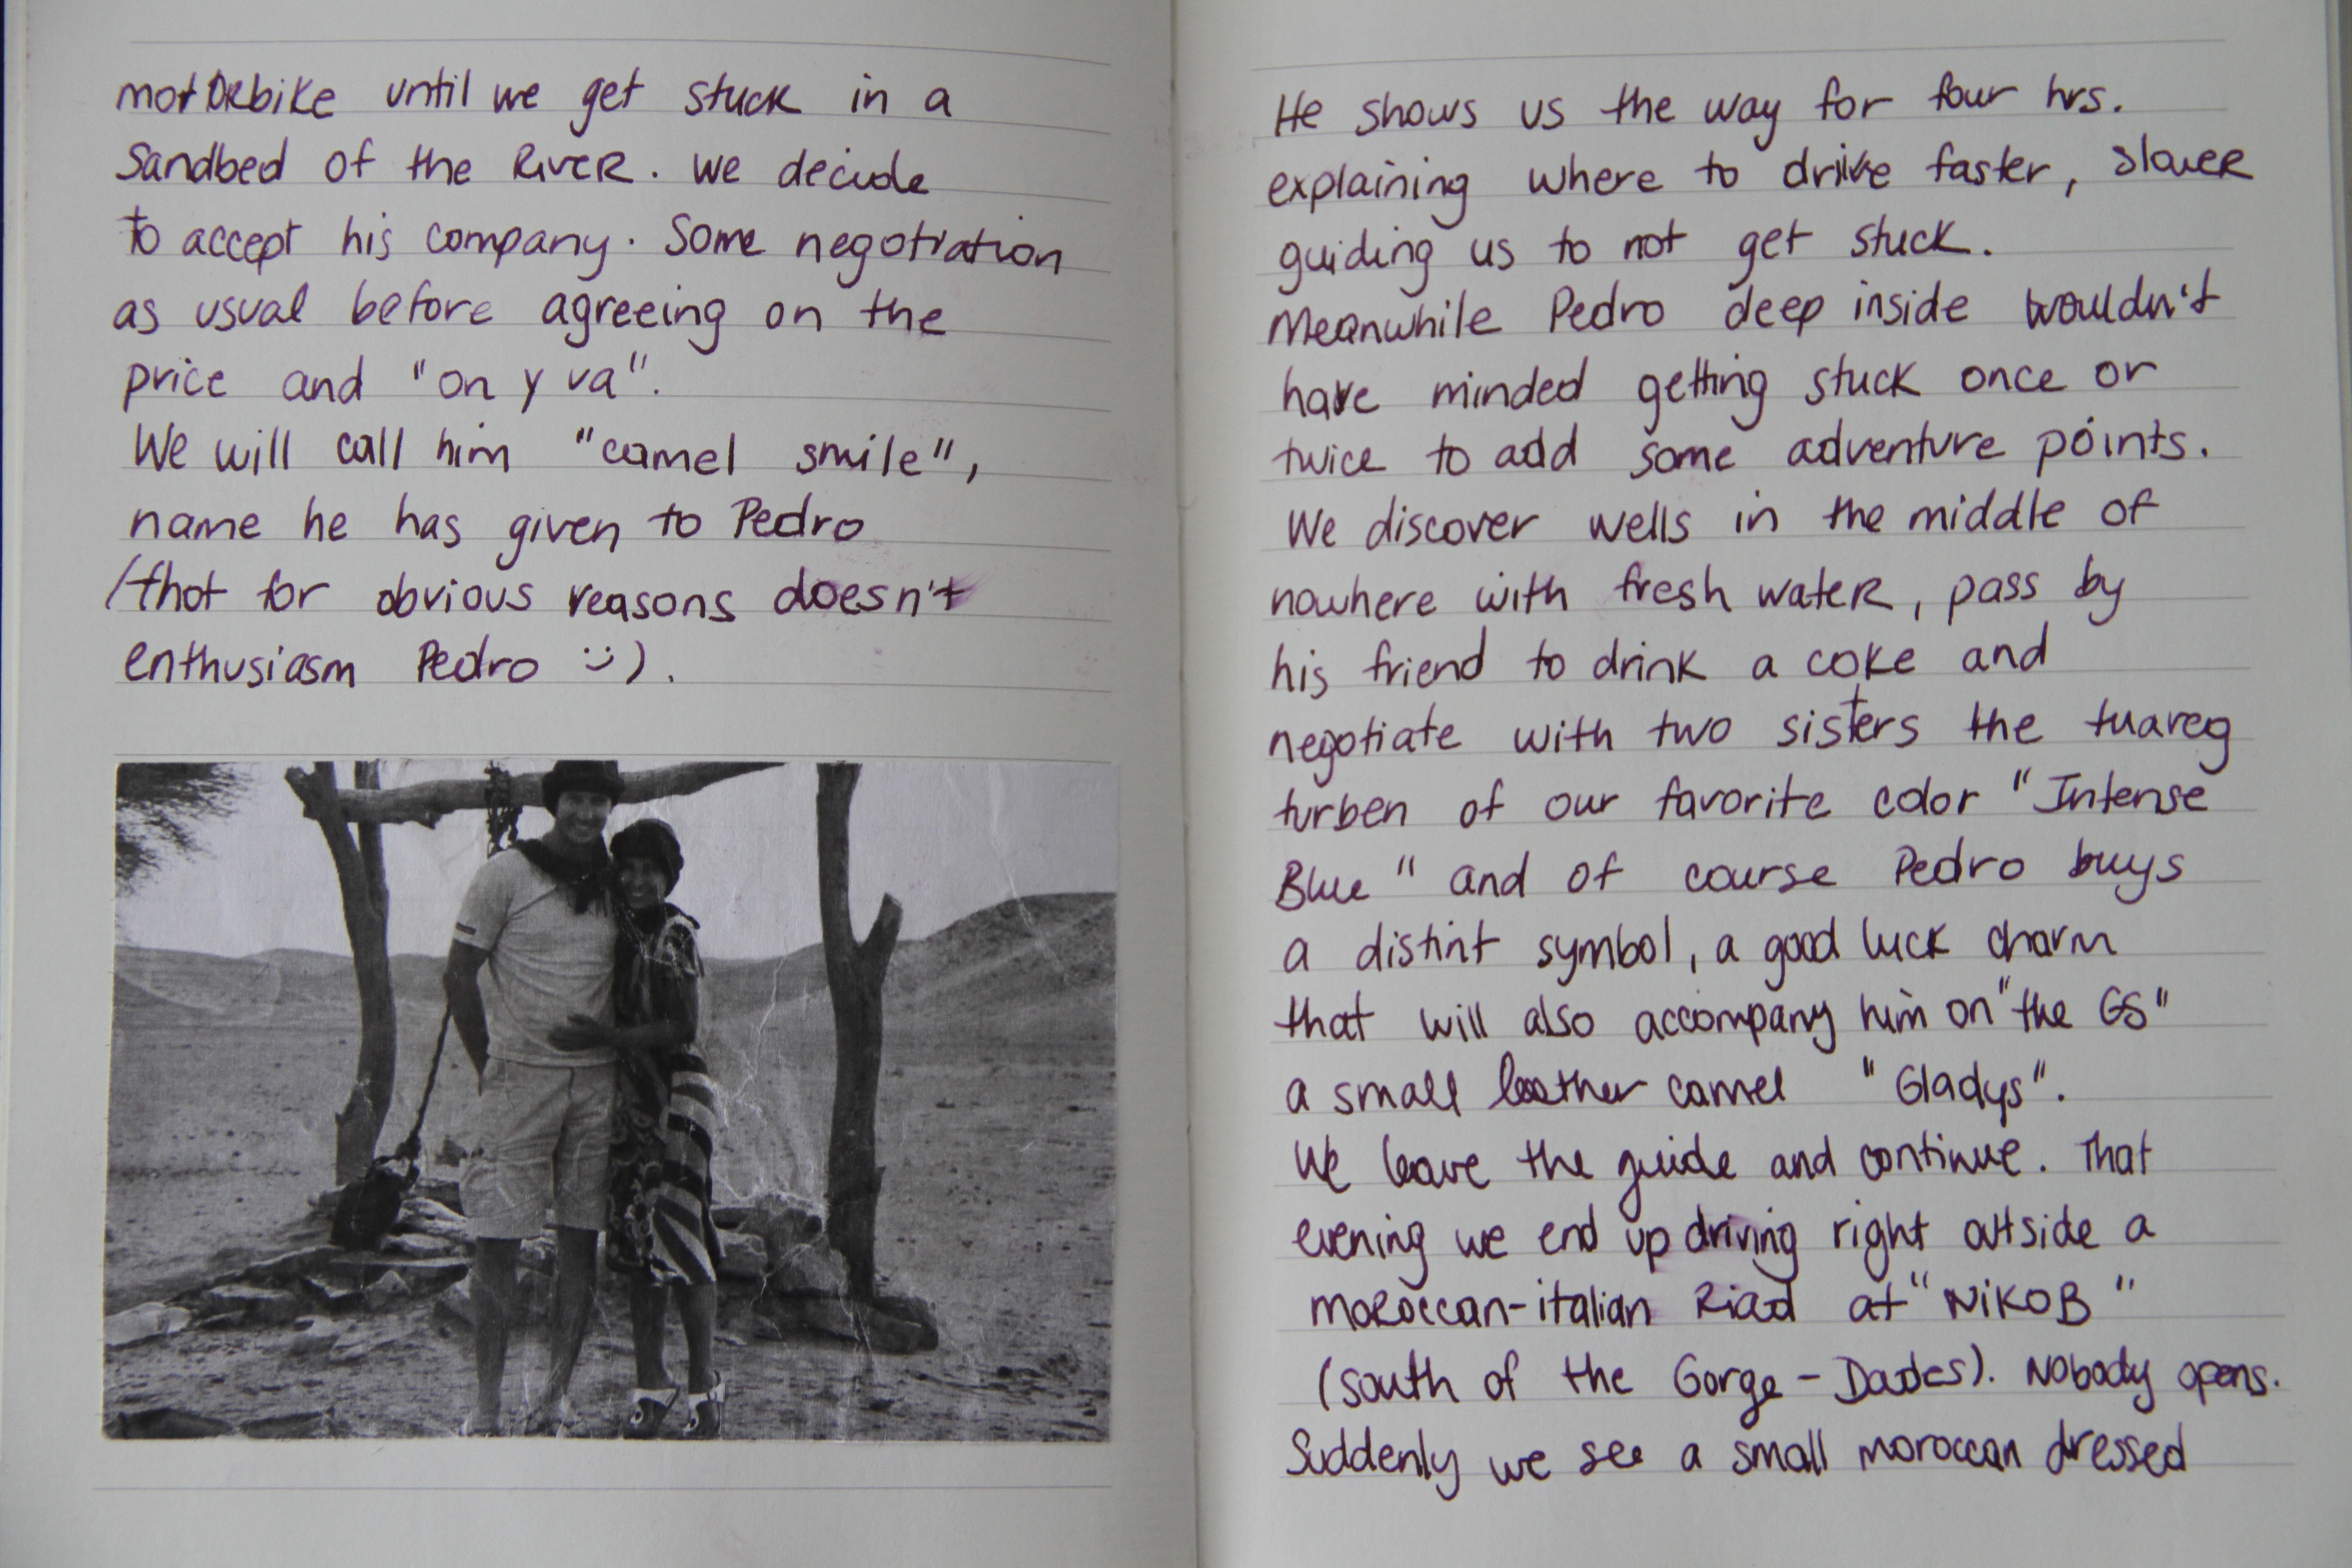 motorbike until we get stuck in a
Sandbed of the River. We decide
to accept his company. Some negotiation
as usual before agreeing on the
price and "on y va".
We will call him "camel smile",
name he has given to Pedro
(that for obvious reasons doesn't
enthusiasm Pedro :)).
He shows us the way for four hrs.
explaining where to drive faster, slower
guiding us to not get stuck.
Meanwhile Pedro deep inside wouldn't
have minded getting stuck once or
twice to add some adventure points.
We discover wells in the middle of
nowhere with fresh water, pass by
his friend to drink a coke and
negotiate with two sisters the tuareg
turben of our favorite color "Intense
Blue" and of course Pedro buys
a distint symbol, a good luck charm
that will also accompany him on "the GS"
a small leather camel "Gladys".
We leave the guide and continue. That
evening we end up driving right outside a
moroccan-italian Riad at "NiKOB"
(south of the Gorge - Dades). Nobody opens.
Suddenly we see a small moroccan dressed